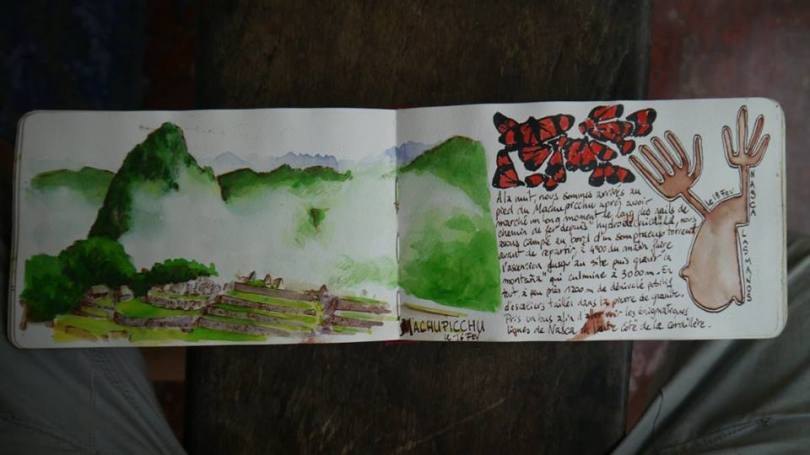 MACHUPICCHU
le 16 FEV
A la nuit, nous sommes arrivés au
pied du Machupicchu après avoir
marché un long moment le long des rails de
chemin de fer depuis "hydroelectrica", nous
avons campé au bord d'un somptueux torrent
avant de repartir à 4h00 du matin faire
l'ascension jusqu'au site puis gravir la
montaña qui culmine à 3000m. En
tout, à peu près 1200 m de dénivelé
d'escaliers taillés dans la pierre de granite.
Pris un bus les énigmatiques
lignes de Nasca de l'autre côté de la cordillère.
le 18 FEV
NASCA
LAS MANOS